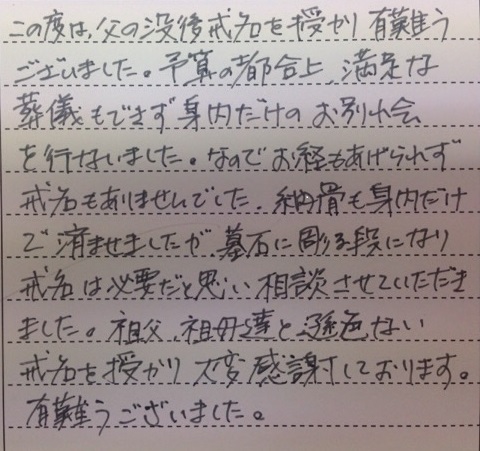 この度は、父の没後戒名を授かり有難う
ございました。予算の都合上、満足な
葬儀もできず身内だけのお別れ会
を行ないました。なのでお経もあげられず
戒名もありませんでした。納骨も身内だけ
で済ませましたが、墓石に彫る段になり
戒名は必要だと思い相談させていただき
ました。祖父、祖母達と遜色ない
戒名を授かり大変感謝しております。
有難うございました。